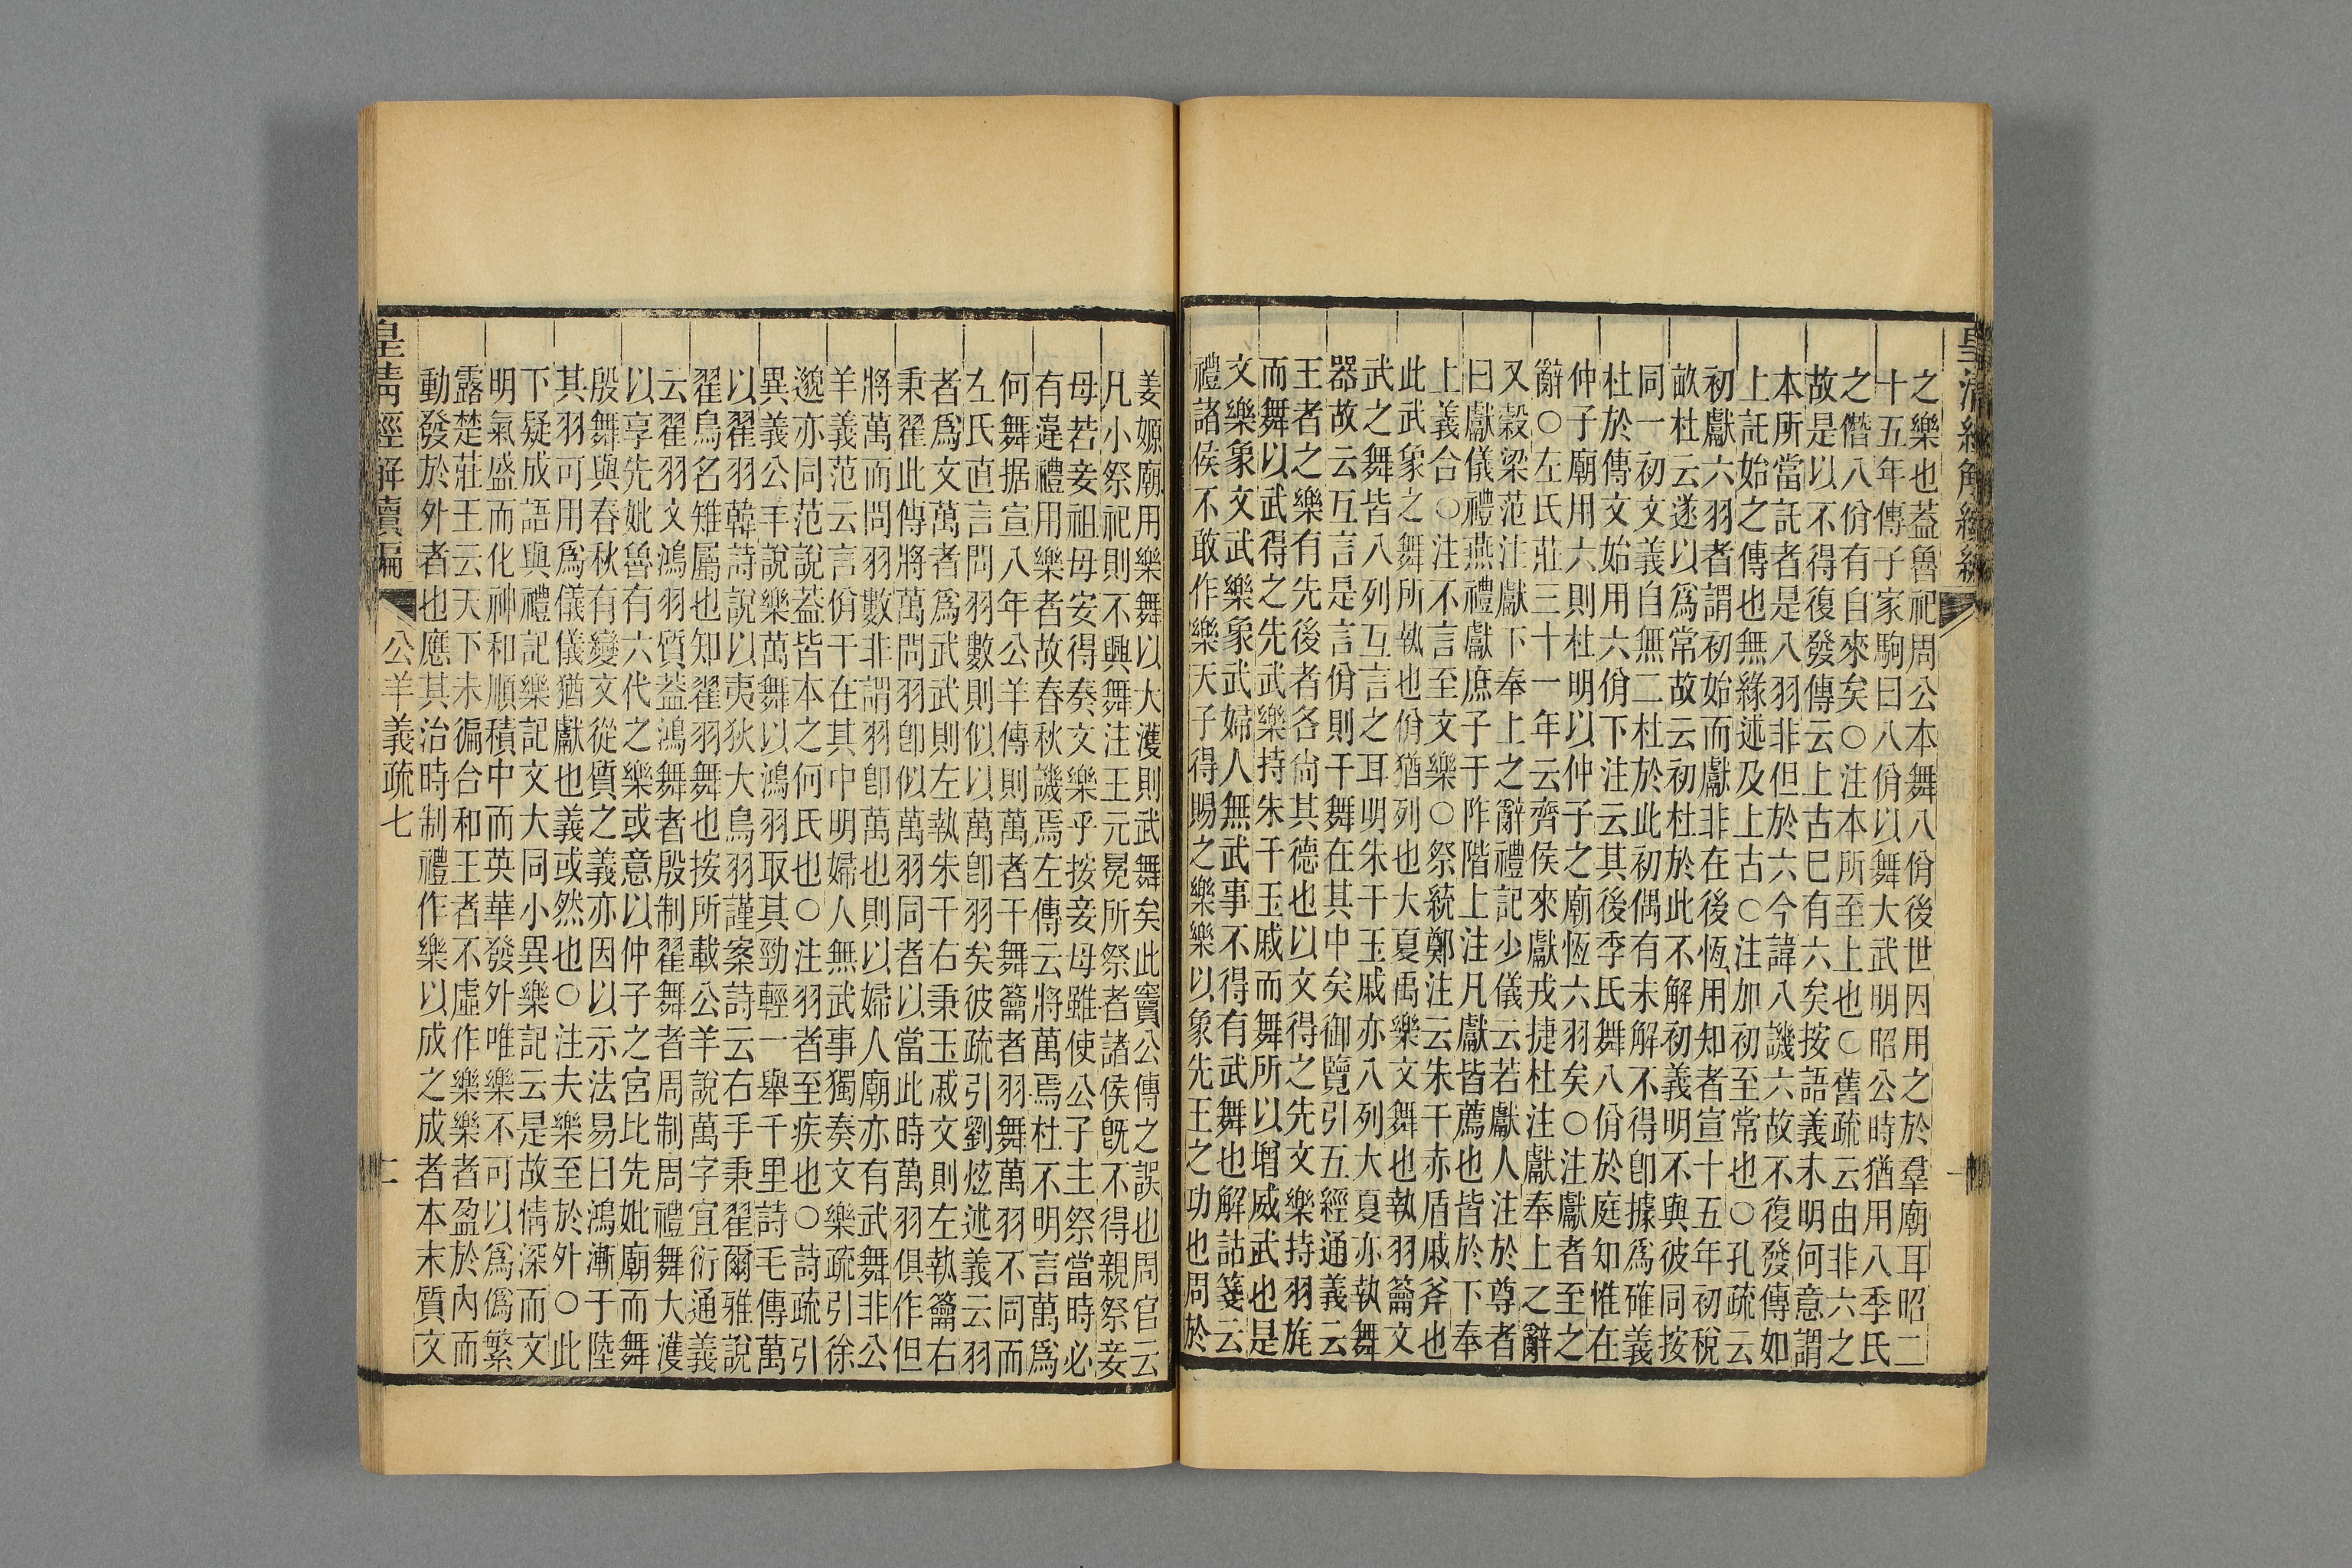 皇清經解續編
之樂也葢魯祀周公本舞八佾後世因用之於羣廟耳昭二
十五年傳子家駒曰八佾以舞大武明昭公時猶用八季氏
之僭八佾有自來矣○注本所至上也○舊疏云由非六之
故是以不得復發傳云上古巳有六矣按語義未明何意謂
本所當託者是八羽非但於六今諱八譏六故不復發傳如
上託始之傳也無緣述及上古○注加初至常也○孔疏云
初獻六羽者謂初始而獻非在後恆用知者宣十五年初稅
畝杜云遂以爲常故云初杜於此不解初義明不與彼同按
同一初文義自無二杜於此初偶有未解不得卽據爲確義
杜於傳文始用六佾下注云其後季氏舞八佾於庭知惟在
仲子廟用六則杜明以仲子之廟恆六羽矣○注獻者至之
辭○左氏莊三十一年云齊侯來獻戎捷杜注獻奉上之辭
又榖梁范注獻下奉上之辭禮記少儀云若獻人注於尊者
曰獻儀禮燕禮獻庶子于阼階上注凡獻皆薦也皆於下奉
上義合○注不言至文樂○祭統鄭注云朱干赤盾戚斧也
此武象之舞所執也佾猶列也大夏禹樂文舞也執羽籥文
武之舞皆八列互言之耳明朱干玉戚亦八列大夏亦執舞
器故云互言是言佾則干舞在其中矣御覽引五經通義云
王者之樂有先後者各尙其德也以文得之先文樂持羽旄
而舞以武得之先武樂持朱干玉戚而舞所以增威武也是
文樂象文武樂象武婦人無武事不得有武舞也解詁箋云
禮諸侯不敢作樂天子得賜之樂樂以象先王之功也周於
姜嫄廟用樂舞以大濩則武舞矣此竇公傳之誤也周官云
凡小祭祀則不興舞注王元冕所祭者諸侯旣不得親祭妾
母若妾祖母安得奏文樂乎按妾母雖使公子主祭當時必
有違禮用樂者故春秋譏焉左傳云將萬焉杜不明言萬爲
何舞据宣八年公羊傳則萬者干舞籥者羽舞萬羽不同而
左氏直言問羽數則似以萬卽羽矣彼疏引劉炫述義云羽
者爲文萬者爲武武則左執朱干右秉玉戚文則左執籥右
秉翟此傳將萬問羽卽似萬羽同者以當此時萬羽俱作但
將萬而問羽數非謂羽卽萬也則以婦人廟亦有武舞非公
羊義范云言佾干在其中明婦人無武事獨奏文樂疏引徐
邈亦同范說葢皆本之何氏也○注羽者至疾也○詩疏引
異義公羊說樂萬舞以鴻羽取其勁輕一舉千里詩毛傳萬
以翟羽韓詩說以夷狄大鳥羽謹案詩云右手秉翟爾雅說
翟鳥名雉屬也知翟羽舞也按所載公羊說萬字宜衍通義
云翟羽文鴻羽質葢鴻舞者殷制翟舞者周制周禮舞大濩
以享先妣魯有六代之樂或意以仲子之宮比先妣廟而舞
殷舞與春秋有變文從質之義亦因以示法易曰鴻漸于陸
其羽可用爲儀儀猶獻也義或然也○注夫樂至於外○此
下疑成語與禮記樂記文大同小異樂記云是故情深而文
明氣盛而化神和順積中而英華發外唯樂不可以爲僞繁
露楚莊王云天下未徧合和王者不虛作樂樂者盈於內而
動發於外者也應其治時制禮作樂以成之成者本末質文
皇淸經解續編
公羊義疏七
二